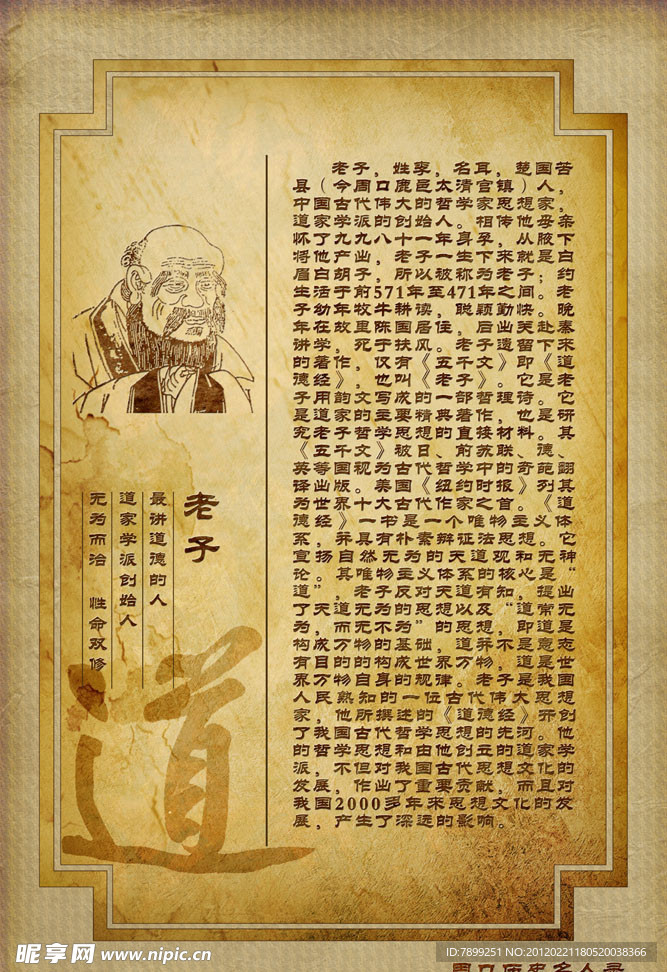 老子，姓李，名耳，楚国苦
县（今周口鹿邑太清宫镇）人，
中国古代伟大的哲学家思想家，
道家学派的创始人。相传他母亲
怀了九九八十一年身孕，从腋下
将他产出，老子一生下来就是白
眉白胡子，所以被称为老子；约
生活于前571年至471年之间。老
子幼年牧牛耕读，聪颖勤快。晚
年在故里陈国居住，后出关赴秦
讲学，死于扶风。老子遗留下来
的著作，仅有《五千文》即《道
德经》，也叫《老子》。它是老
子用韵文写成的一部哲理诗。它
是道家的主要精典著作，也是研
究老子哲学思想的直接材料。其
《五千文》被日、前苏联、德、
英等国视为古代哲学中的奇葩翻
译出版。美国《纽约时报》列其
为世界十大古代作家之首。《道
德经》一书是一个唯物主义体
系，并具有朴素辩证法思想。它
宣扬自然无为的天道观和无神
论。其唯物主义体系的核心是“
道”，老子反对天道有知，提出
了天道无为的思想以及“道常无
为，而无不为”的思想，即道是
构成万物的基础，道并不是意志
有目的的构成世界万物，道是世
界万物自身的规律。老子是我国
人民熟知的一位古代伟大思想
家，他所撰述的《道德经》开创
了我国古代哲学思想的先河。他
的哲学思想和由他创立的道家学
派，不但对我国古代思想文化的
发展，作出了重要贡献，而且对
我国2000多年来思想文化的发
展，产生了深远的影响。
老子
最讲道德的人
道家学派创始人
无为而治 性命双修
道
昵享网 www.nipic.cn
ID:7899251 NO:20120221180520038366